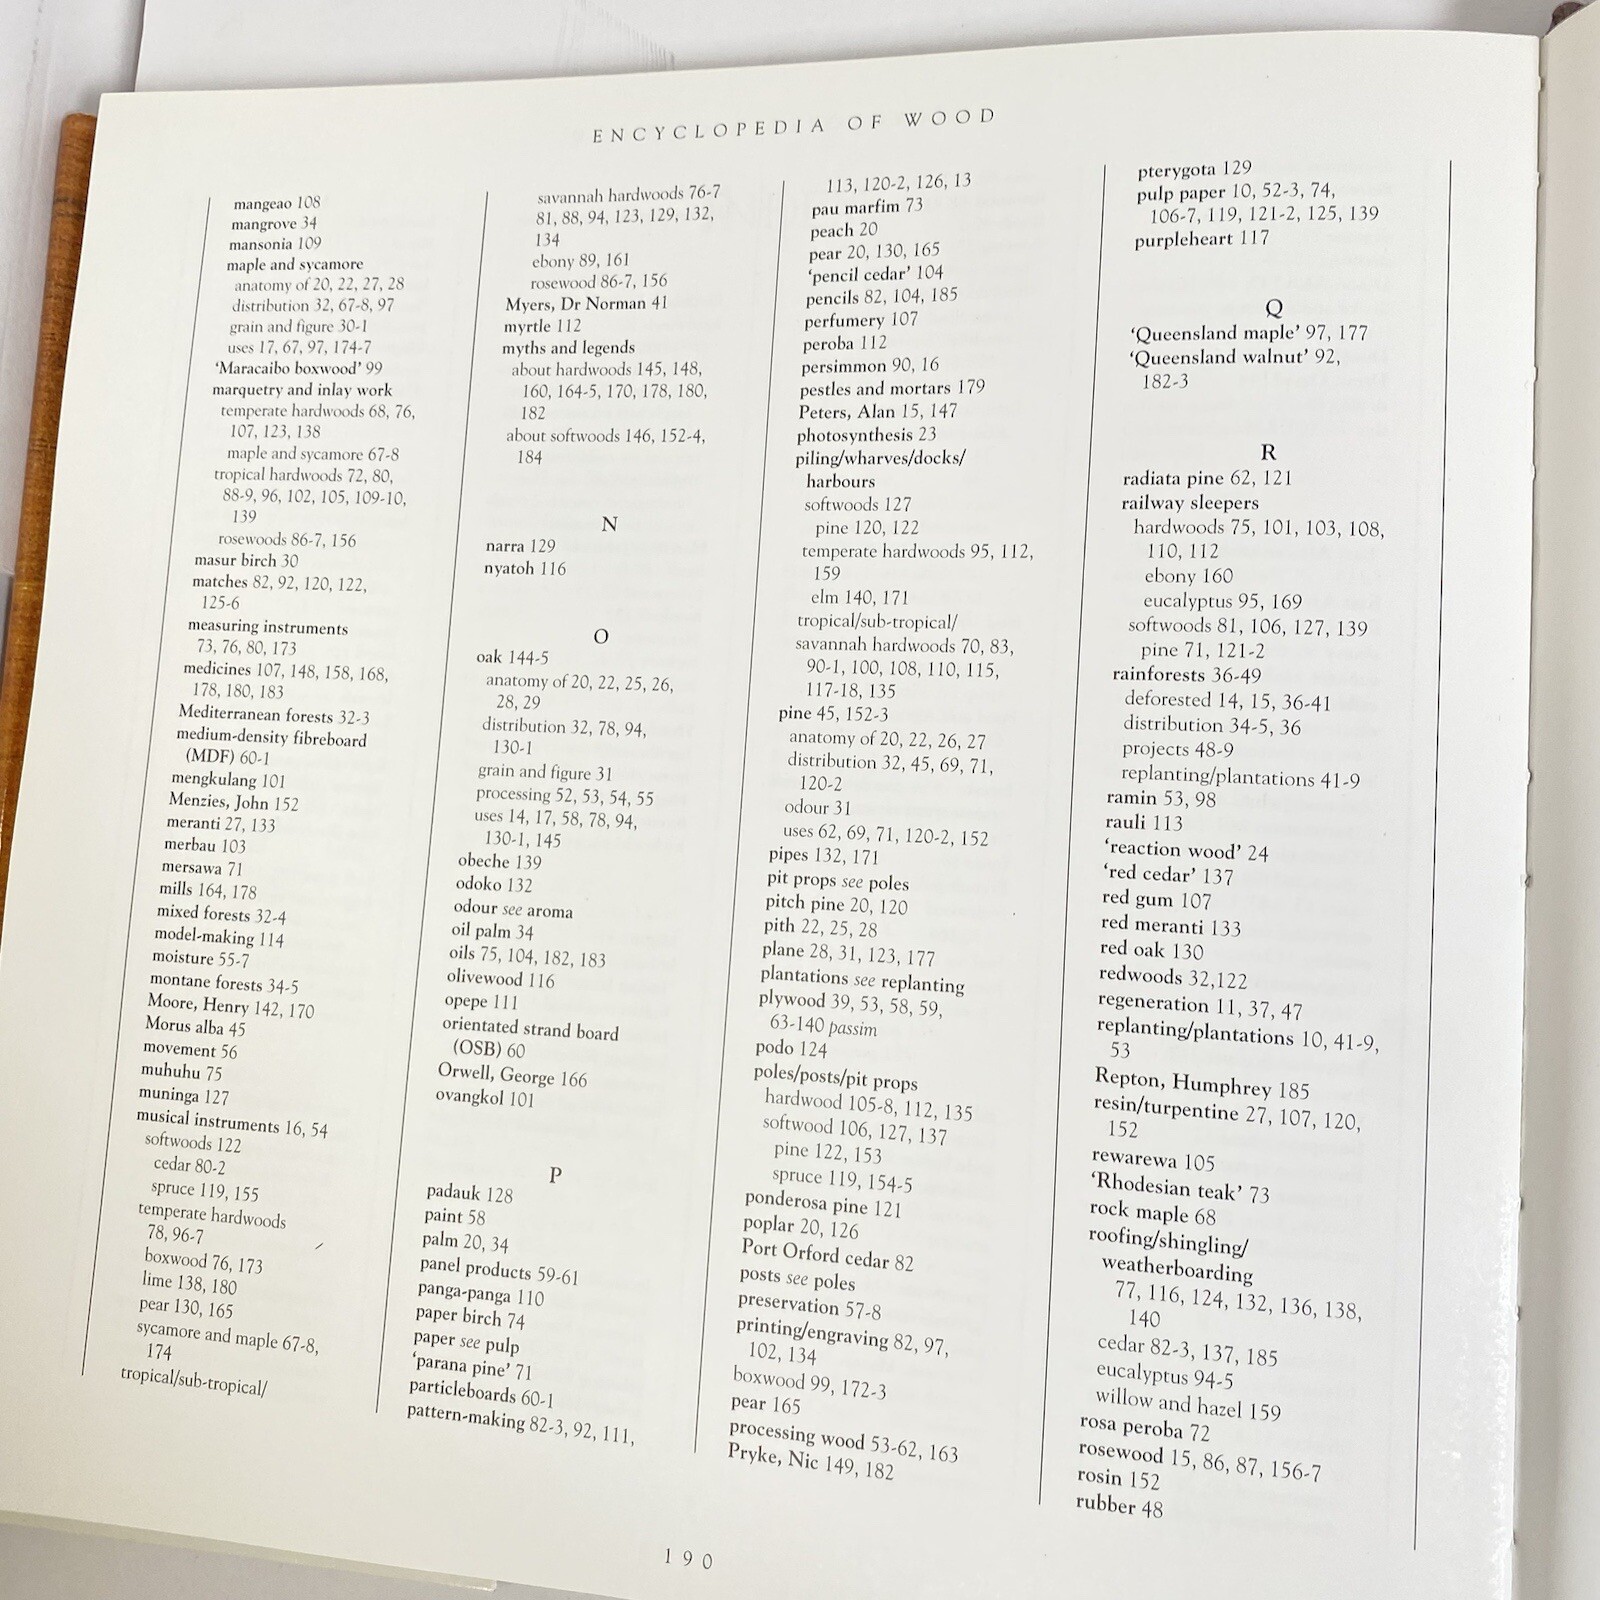 ENCYCLOPEDIA OF WOOD
mangeao 108
mangrove 34
mansonia 109
maple and sycamore
anatomy of 20, 22, 27, 28
distribution 32, 67-8, 97
grain and figure 30-1
uses 17, 67, 97, 174-7
'Maracaibo boxwood' 99
marquetry and inlay work
temperate hardwoods 68, 76,
107, 123, 138
maple and sycamore 67-8
tropical hardwoods 72, 80,
88-9, 96, 102, 105, 109-10,
139
rosewoods 86-7, 156
masur birch 30
matches 82, 92, 120, 122,
125-6
measuring instruments
73, 76, 80, 173
medicines 107, 148, 158, 168,
178, 180, 183
Mediterranean forests 32-3
medium-density fibreboard
(MDF) 60-1
mengkulang 101
Menzies, John 152
meranti 27, 133
merbau 103
mersawa 71
mills 164, 178
mixed forests 32-4
model-making 114
moisture 55-7
montane forests 34-5
Moore, Henry 142, 170
Morus alba 45
movement 56
muhuhu 75
muninga 127
musical instruments 16, 54
softwoods 122
cedar 80-2
spruce 119, 155
temperate hardwoods
78, 96-7
boxwood 76, 173
lime 138, 180
pear 130, 165
sycamore and maple 67-8,
174
tropical/sub-tropical/
savannah hardwoods 76-7
81, 88, 94, 123, 129, 132,
134
ebony 89, 161
rosewood 86-7, 156
Myers, Dr Norman 41
myrtle 112
myths and legends
about hardwoods 145, 148,
160, 164-5, 170, 178, 180,
182
about softwoods 146, 152-4,
184
N
narra 129
nyatoh 116
O
oak 144-5
anatomy of 20, 22, 25, 26,
28, 29
distribution 32, 78, 94,
130-1
grain and figure 31
processing 52, 53, 54, 55
uses 14, 17, 58, 78, 94,
130-1, 145
obeche 139
odoko 132
odour see aroma
oil palm 34
oils 75, 104, 182, 183
olivewood 116
opepe 111
orientated strand board
(OSB) 60
Orwell, George 166
ovangkol 101
P
padauk 128
paint 58
palm 20, 34
panel products 59-61
panga-panga 110
paper birch 74
paper see pulp
'parana pine' 71
particleboards 60-1
pattern-making 82-3, 92, 111,
113, 120-2, 126, 13
pau marfim 73
peach 20
pear 20, 130, 165
'pencil cedar' 104
pencils 82, 104, 185
perfumery 107
peroba 112
persimmon 90, 16
pestles and mortars 179
Peters, Alan 15, 147
photosynthesis 23
piling/wharves/docks/
harbours
softwoods 127
pine 120, 122
temperate hardwoods 95, 112,
159
elm 140, 171
tropical/sub-tropical/
savannah hardwoods 70, 83,
90-1, 100, 108, 110, 115,
117-18, 135
pine 45, 152-3
anatomy of 20, 22, 26, 27
distribution 32, 45, 69, 71,
120-2
odour 31
uses 62, 69, 71, 120-2, 152
pipes 132, 171
pit props see poles
pitch pine 20, 120
pith 22, 25, 28
plane 28, 31, 123, 177
plantations see replanting
plywood 39, 53, 58, 59,
63-140 passim
podo 124
poles/posts/pit props
hardwood 105-8, 112, 135
softwood 106, 127, 137
pine 122, 153
spruce 119, 154-5
ponderosa pine 121
poplar 20, 126
Port Orford cedar 82
posts see poles
preservation 57-8
printing/engraving 82, 97,
102, 134
boxwood 99, 172-3
pear 165
processing wood 53-62, 163
Pryke, Nic 149, 182
pterygota 129
pulp paper 10, 52-3, 74,
106-7, 119, 121-2, 125, 139
purpleheart 117
Q
'Queensland maple' 97, 177
'Queensland walnut' 92,
182-3
R
radiata pine 62, 121
railway sleepers
hardwoods 75, 101, 103, 108,
110, 112
ebony 160
eucalyptus 95, 169
softwoods 81, 106, 127, 139
pine 71, 121-2
rainforests 36-49
deforested 14, 15, 36-41
distribution 34-5, 36
projects 48-9
replanting/plantations 41-9
ramin 53, 98
rauli 113
'reaction wood' 24
'red cedar' 137
red gum 107
red meranti 133
red oak 130
redwoods 32,122
regeneration 11, 37, 47
replanting/plantations 10, 41-9,
53
Repton, Humphrey 185
resin/turpentine 27, 107, 120,
152
rewarewa 105
'Rhodesian teak' 73
rock maple 68
roofing/shingling/
weatherboarding
77, 116, 124, 132, 136, 138,
140
cedar 82-3, 137, 185
eucalyptus 94-5
willow and hazel 159
rosa peroba 72
rosewood 15, 86, 87, 156-7
rosin 152
rubber 48
190